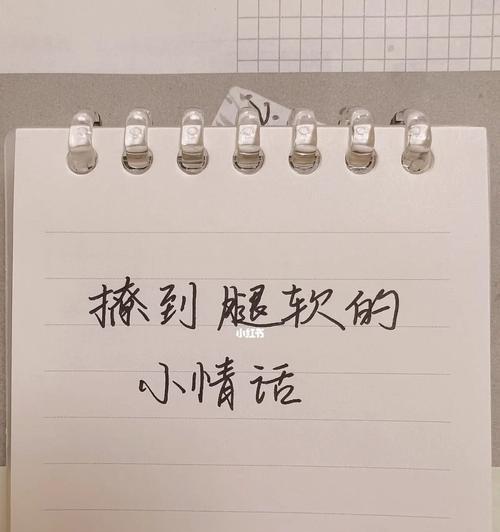 撩到腿软的
小红书
小情话